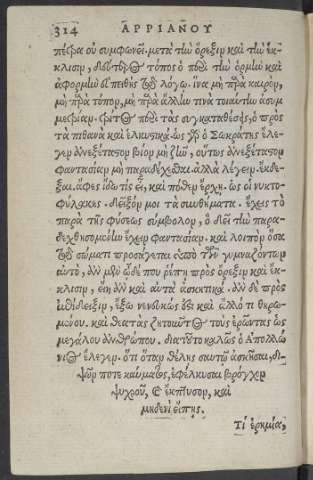 314 ΑΡΡΙΑΝΟΥ
πέιρα οὐ συμφωνεῖ. μετὰ τὴν ὄρεξιν καὶ τὴν ἔκ-
κλισιν, δεύτερος τόπος ὁ περὶ τὴν ὁρμὴν καὶ
ἀφορμὴν εὐπειθὴς τῷ λόγῳ. ἵνα μὴ παρὰ καιρὸν,
μὴ παρὰ τόπον, μὴ παρὰ ἄλλην τινὰ τοιαύτην ἀσυμ
μετρίαν. τρίτος ὁ περὶ τὰς συγκαταθέσεις, ὁ πρὸς
τὰ πιθανὰ καὶ ἑλκυστικά. ὡς γὰρ ὁ Σωκράτης ἔλε-
γεν ἀνεξέταστον βίον μὴ ζῆν, οὕτως ἀνεξέταστον
φαντασίαν μὴ παραδέχεσθαι. ἀλλὰ λέγειν. ἔκδε-
ξαι. ἄφες ἴδω τίς εἶ, καὶ πόθεν ἔρχῃ. ὡς οἱ νυκτο-
φύλακες. δεῖξόν μοι τὰ συνθήματα. ἔχεις τὸ
παρὰ τῆς φύσεως σύμβολον, ὃ δεῖ τὴν παρα-
δεχθησομένην ἔχειν φαντασίαν. καὶ λοιπὸν ὅσα
τῷ σώματι προσάγεται ὑπὸ τῶν γυμναζόντων
αὐτὸ, ἂν μὲν ὧδέ που ῥέπῃ πρὸς ὄρεξιν καὶ ἔκ-
κλισιν, εἴη ἂν καὶ αὐτὰ ἀσκητικά. ἂν δὲ πρὸς
ἐπίδειξιν, ἔξω νενευκός ἐστι καὶ ἄλλο τι θηρω-
μένου. καὶ θεατὰς ζητοῦντος τοὺς ἐροῦντας ὢ
μεγάλου ἀνθρώπου. διὰ τοῦτο καλῶς ὁ Ἀπολλώ
νιος ἔλεγεν. ὅτι ὅταν θέλῃς σαυτῷ ἀσκῆσαι, δι-
ψῶν ποτε καύματος, ἐφέλκυσαι βρόγχον
ψυχροῦ, καὶ ἔκπτυσον, καὶ
μηδενὶ εἴπῃς.
Τί ἐρημία,